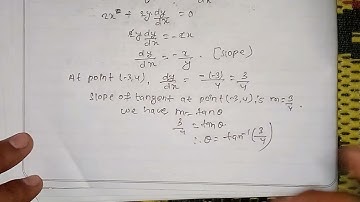 2x + 2y dy/dx = 0
2y dy/dx = -2x
dy/dx = -x/y . [Slope]
At point (-3,4), dy/dx = -(-3)/4 = 3/4
Slope of tangent at point (-3,4) is m = 3/4 .
we have m = tan θ
3/4 = tan θ
∴ θ = tan⁻¹(3/4)